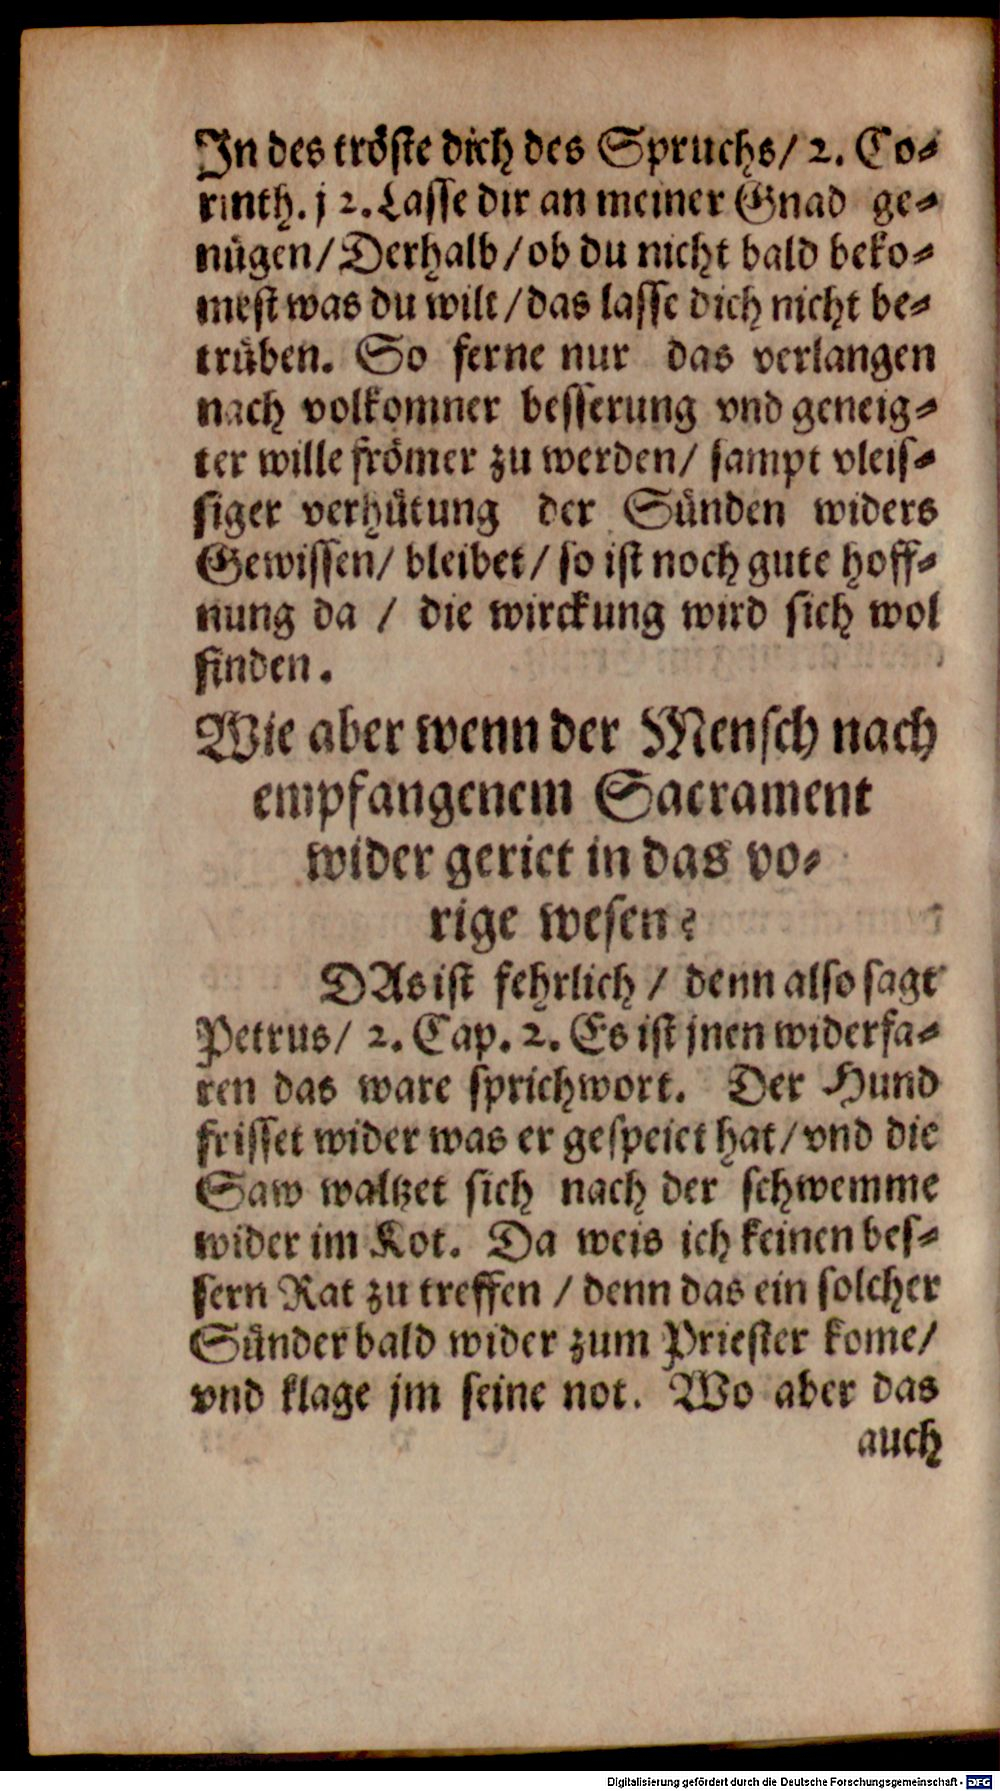 In des tröste dich des Spruchs/ 2. Co-
rinth. j 2. Lasse dir an meiner Gnad ge-
nügen/ Derhalb/ ob du nicht bald beko-
mest was du wilt/ das lasse dich nicht be-
trüben. So ferne nur das verlangen
nach volkomner besserung vnd geneig-
ter wille frömer zu werden/ sampt vleis-
siger verhütung der Sünden widers
Gewissen/ bleibet/ so ist noch gute hoff-
nung da / die wirckung wird sich wol
finden.
Wie aber wenn der Mensch nach
empfangenem Sacrament
wider geriet in das vo-
rige wesen?
DAs ist fehrlich / denn also sagt
Petrus/ 2. Cap. 2. Es ist jnen widerfa-
ren das ware sprichwort. Der Hund
frisset wider was er gespeiet hat/ vnd die
Saw waltzet sich nach der schwemme
wider im Kot. Da weis ich keinen bes-
sern Rat zu treffen / denn das ein solcher
Sünder bald wider zum Priester kome/
vnd klage jm seine not. Wo aber das
auch
Digitalisierung gefördert durch die Deutsche Forschungsgemeinschaft - DFG